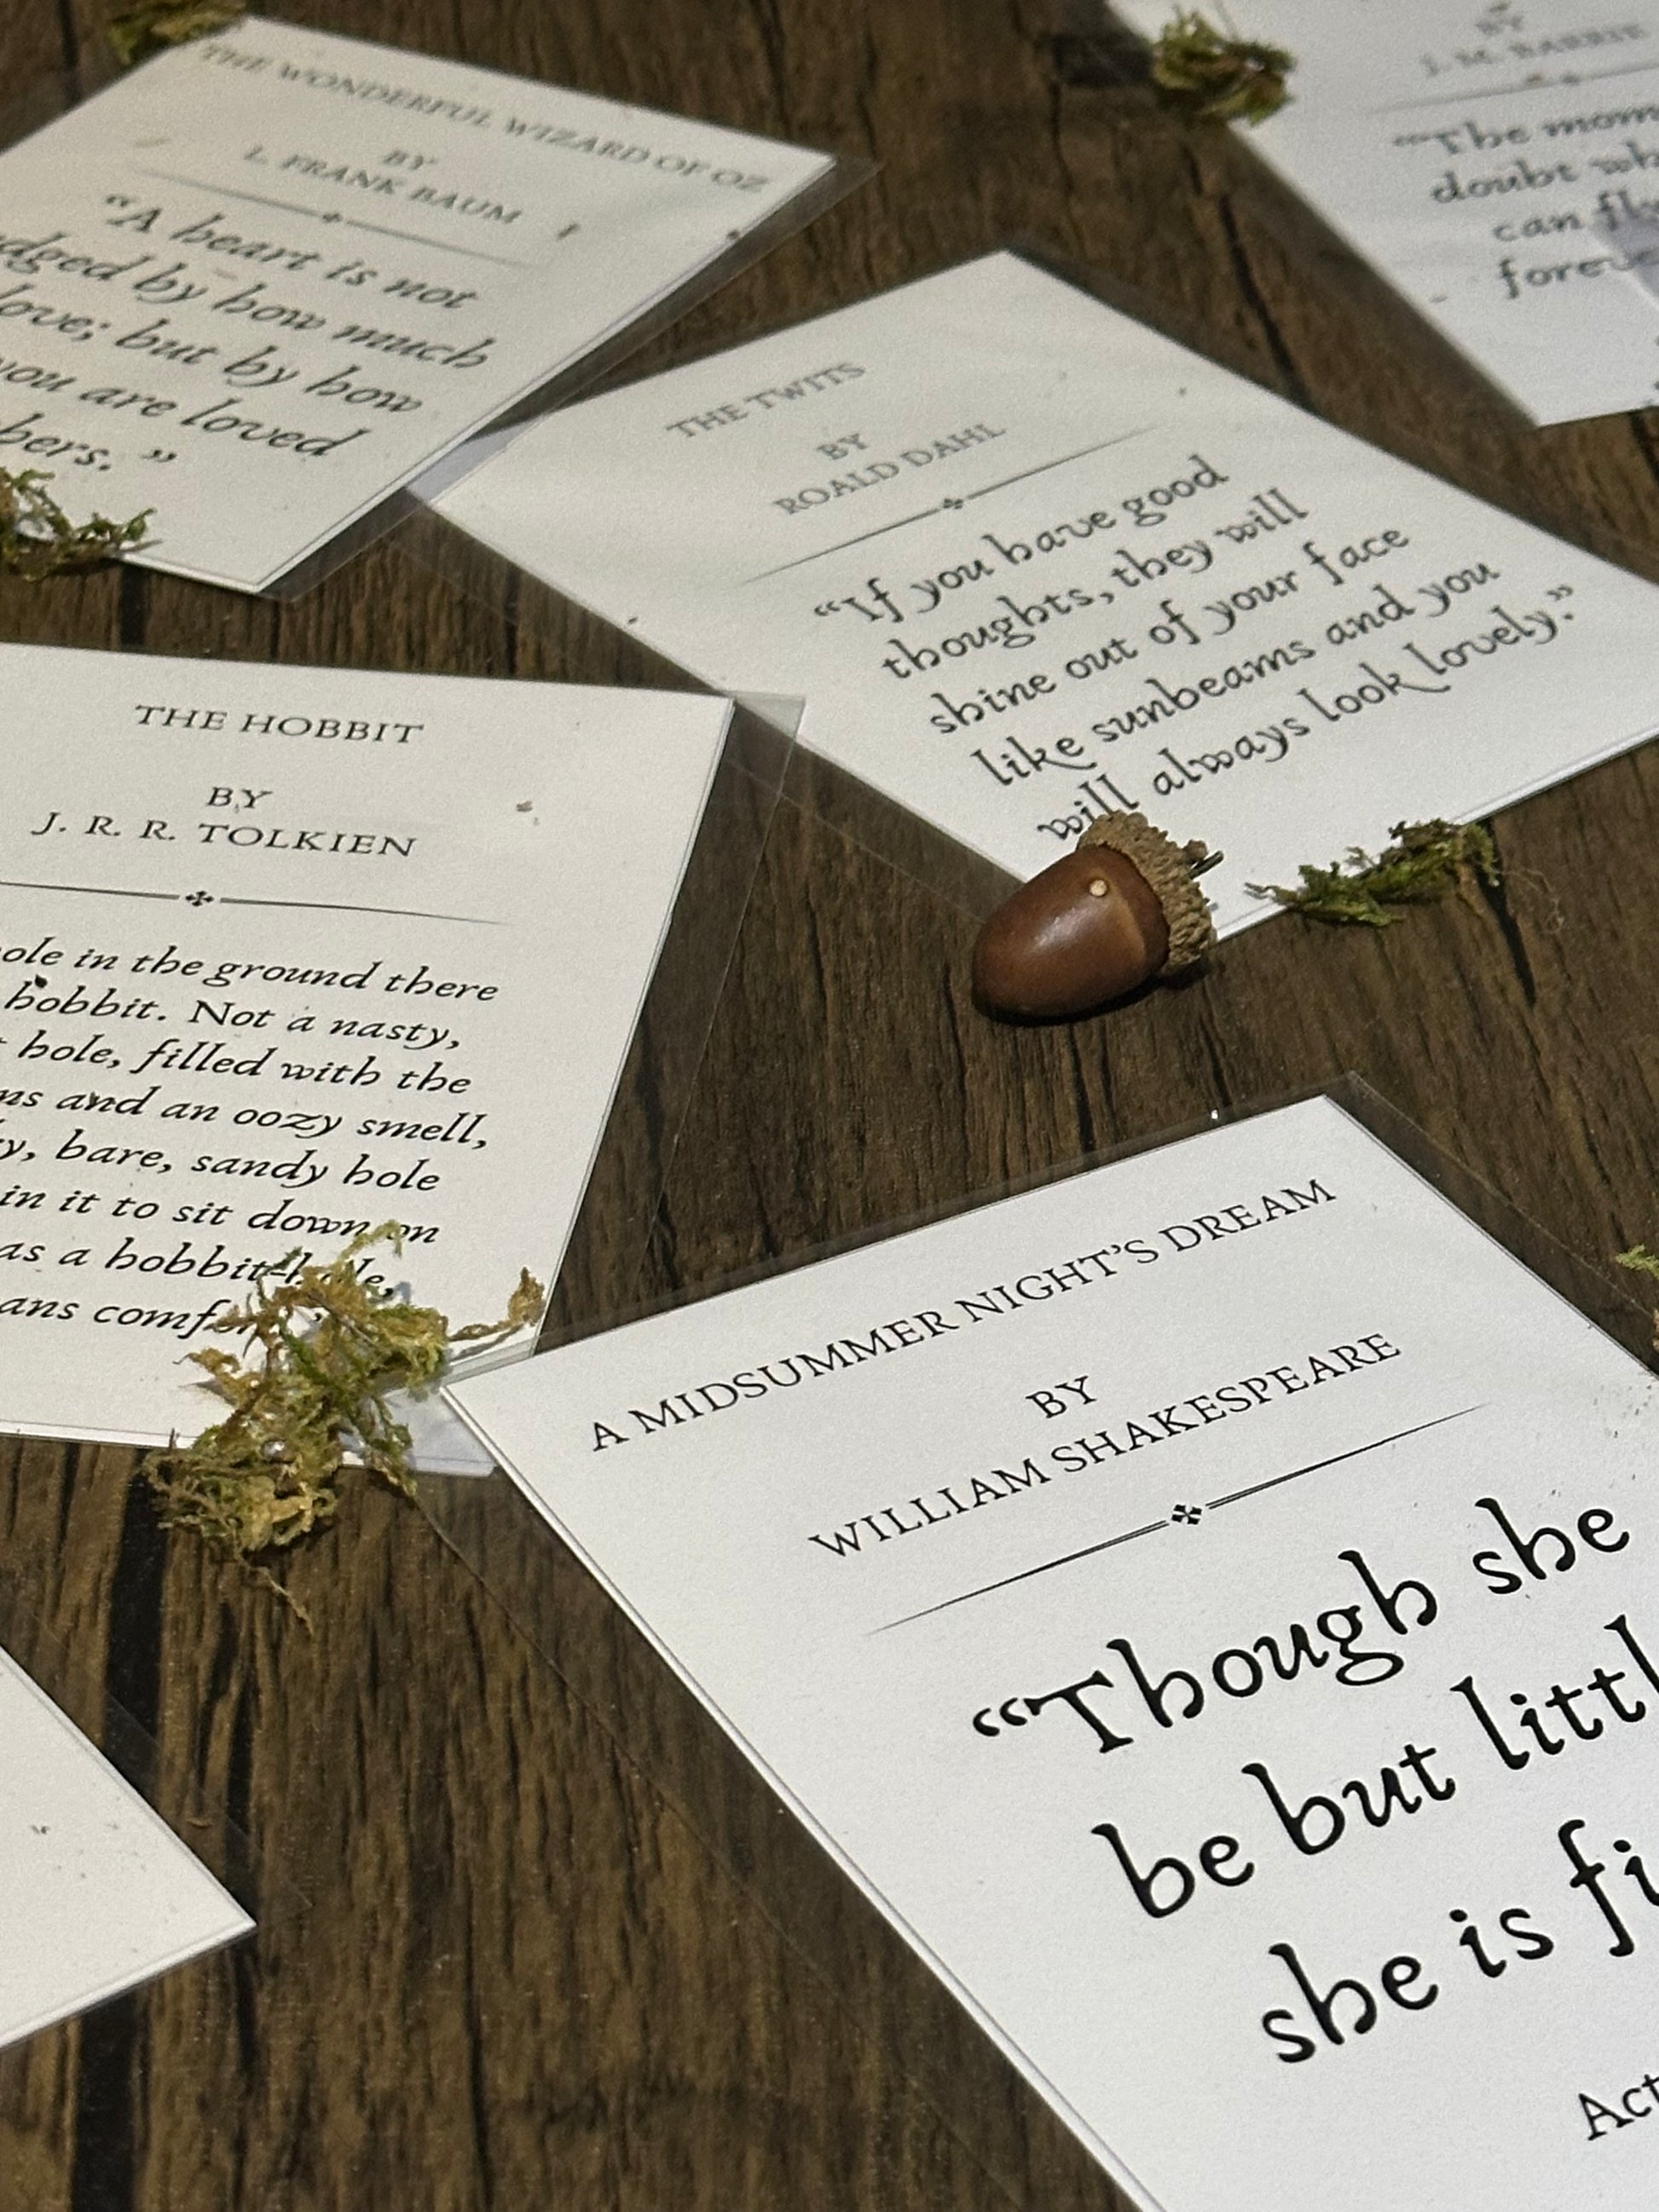 THE WONDERFUL WIZARD OF OZ
BY
L. FRANK BAUM
“A heart is not
by how much
love; but by how
you are loved
”
BY
J. M. BARRIE
“The
doubt
can
THE TWITS
BY
ROALD DAHL
“If you have good
thoughts, they will
shine out of your face
like sunbeams and you
will always look lovely.”
THE HOBBIT
BY
J. R. R. TOLKIEN
in the ground there
hobbit. Not a nasty,
hole, filled with the
and an oozy smell,
bare, sandy hole
in it to sit down on
as a hobbit-hole,
A MIDSUMMER NIGHT’S DREAM
BY
WILLIAM SHAKESPEARE
“Though she
be but
she is
Act